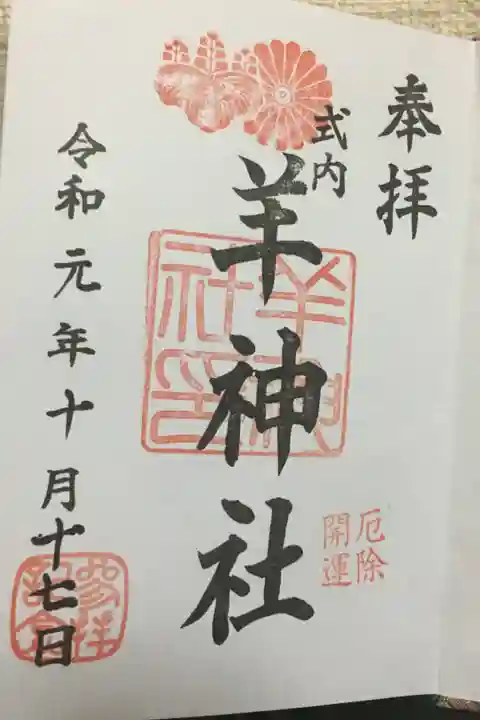 奉拝
式内
羊神社
羊神社印
厄除
開運
令和元年十月十七日
参拝記念